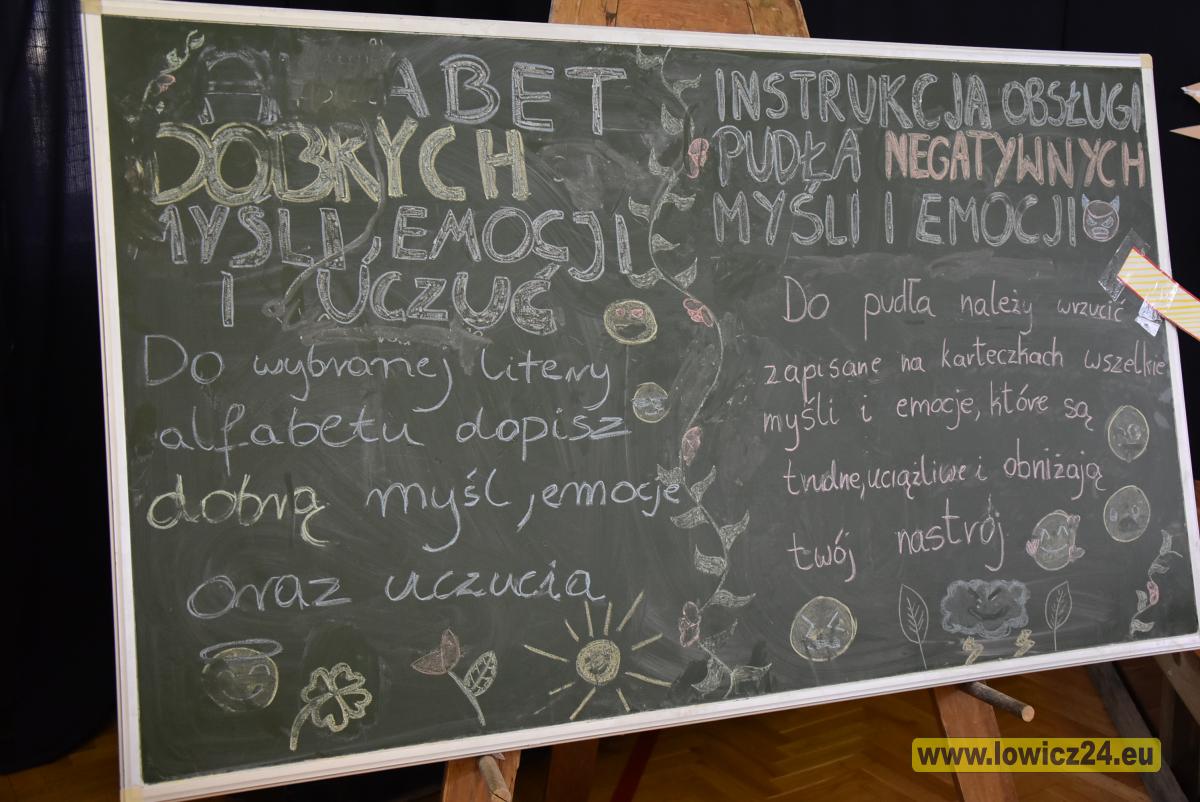 A ABET
DOBRYCH
MYŚLI, EMOCJI
I UCZUĆ
Do wybranej litery
alfabetu dopisz
dobrą myśl, emocje
oraz uczucia
INSTRUKCJA OBSŁUGI
PUDŁA NEGATYWNYCH
MYŚLI I EMOCJI
Do pudła należy wrzucić
zapisane na karteczkach wszelkie
myśli i emocje, które są
trudne, uciążliwe i obniżają
twój nastrój
www.lowicz24.eu